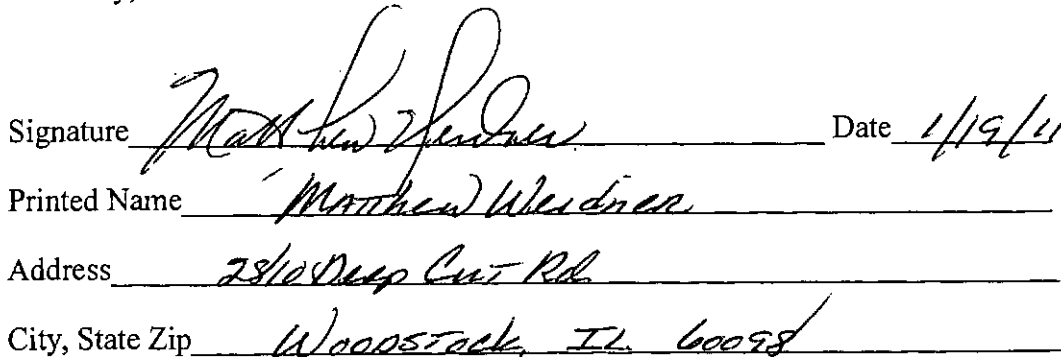 Signature Matthew Weidner Date 1/19/11
Printed Name Matthew Weidner
Address 2810 Deep Cut Rd
City, State Zip Woodstock, IL 60098